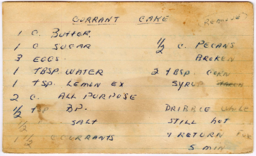 CURRANT CAKE
1 C. BUTTER
1 C. SUGAR
3 EGGS
1 TBSP WATER
1 TSP. LEMON EX
2 C. ALL PURPOSE
1/2 BP.
SALT
1 1/2 CURRANTS
1/2 C. PECANS
BROKEN
2 TBSP. CORN
SYRUP
DRIBBLE WHILE
STILL HOT
RETURN FOR
5 MIN